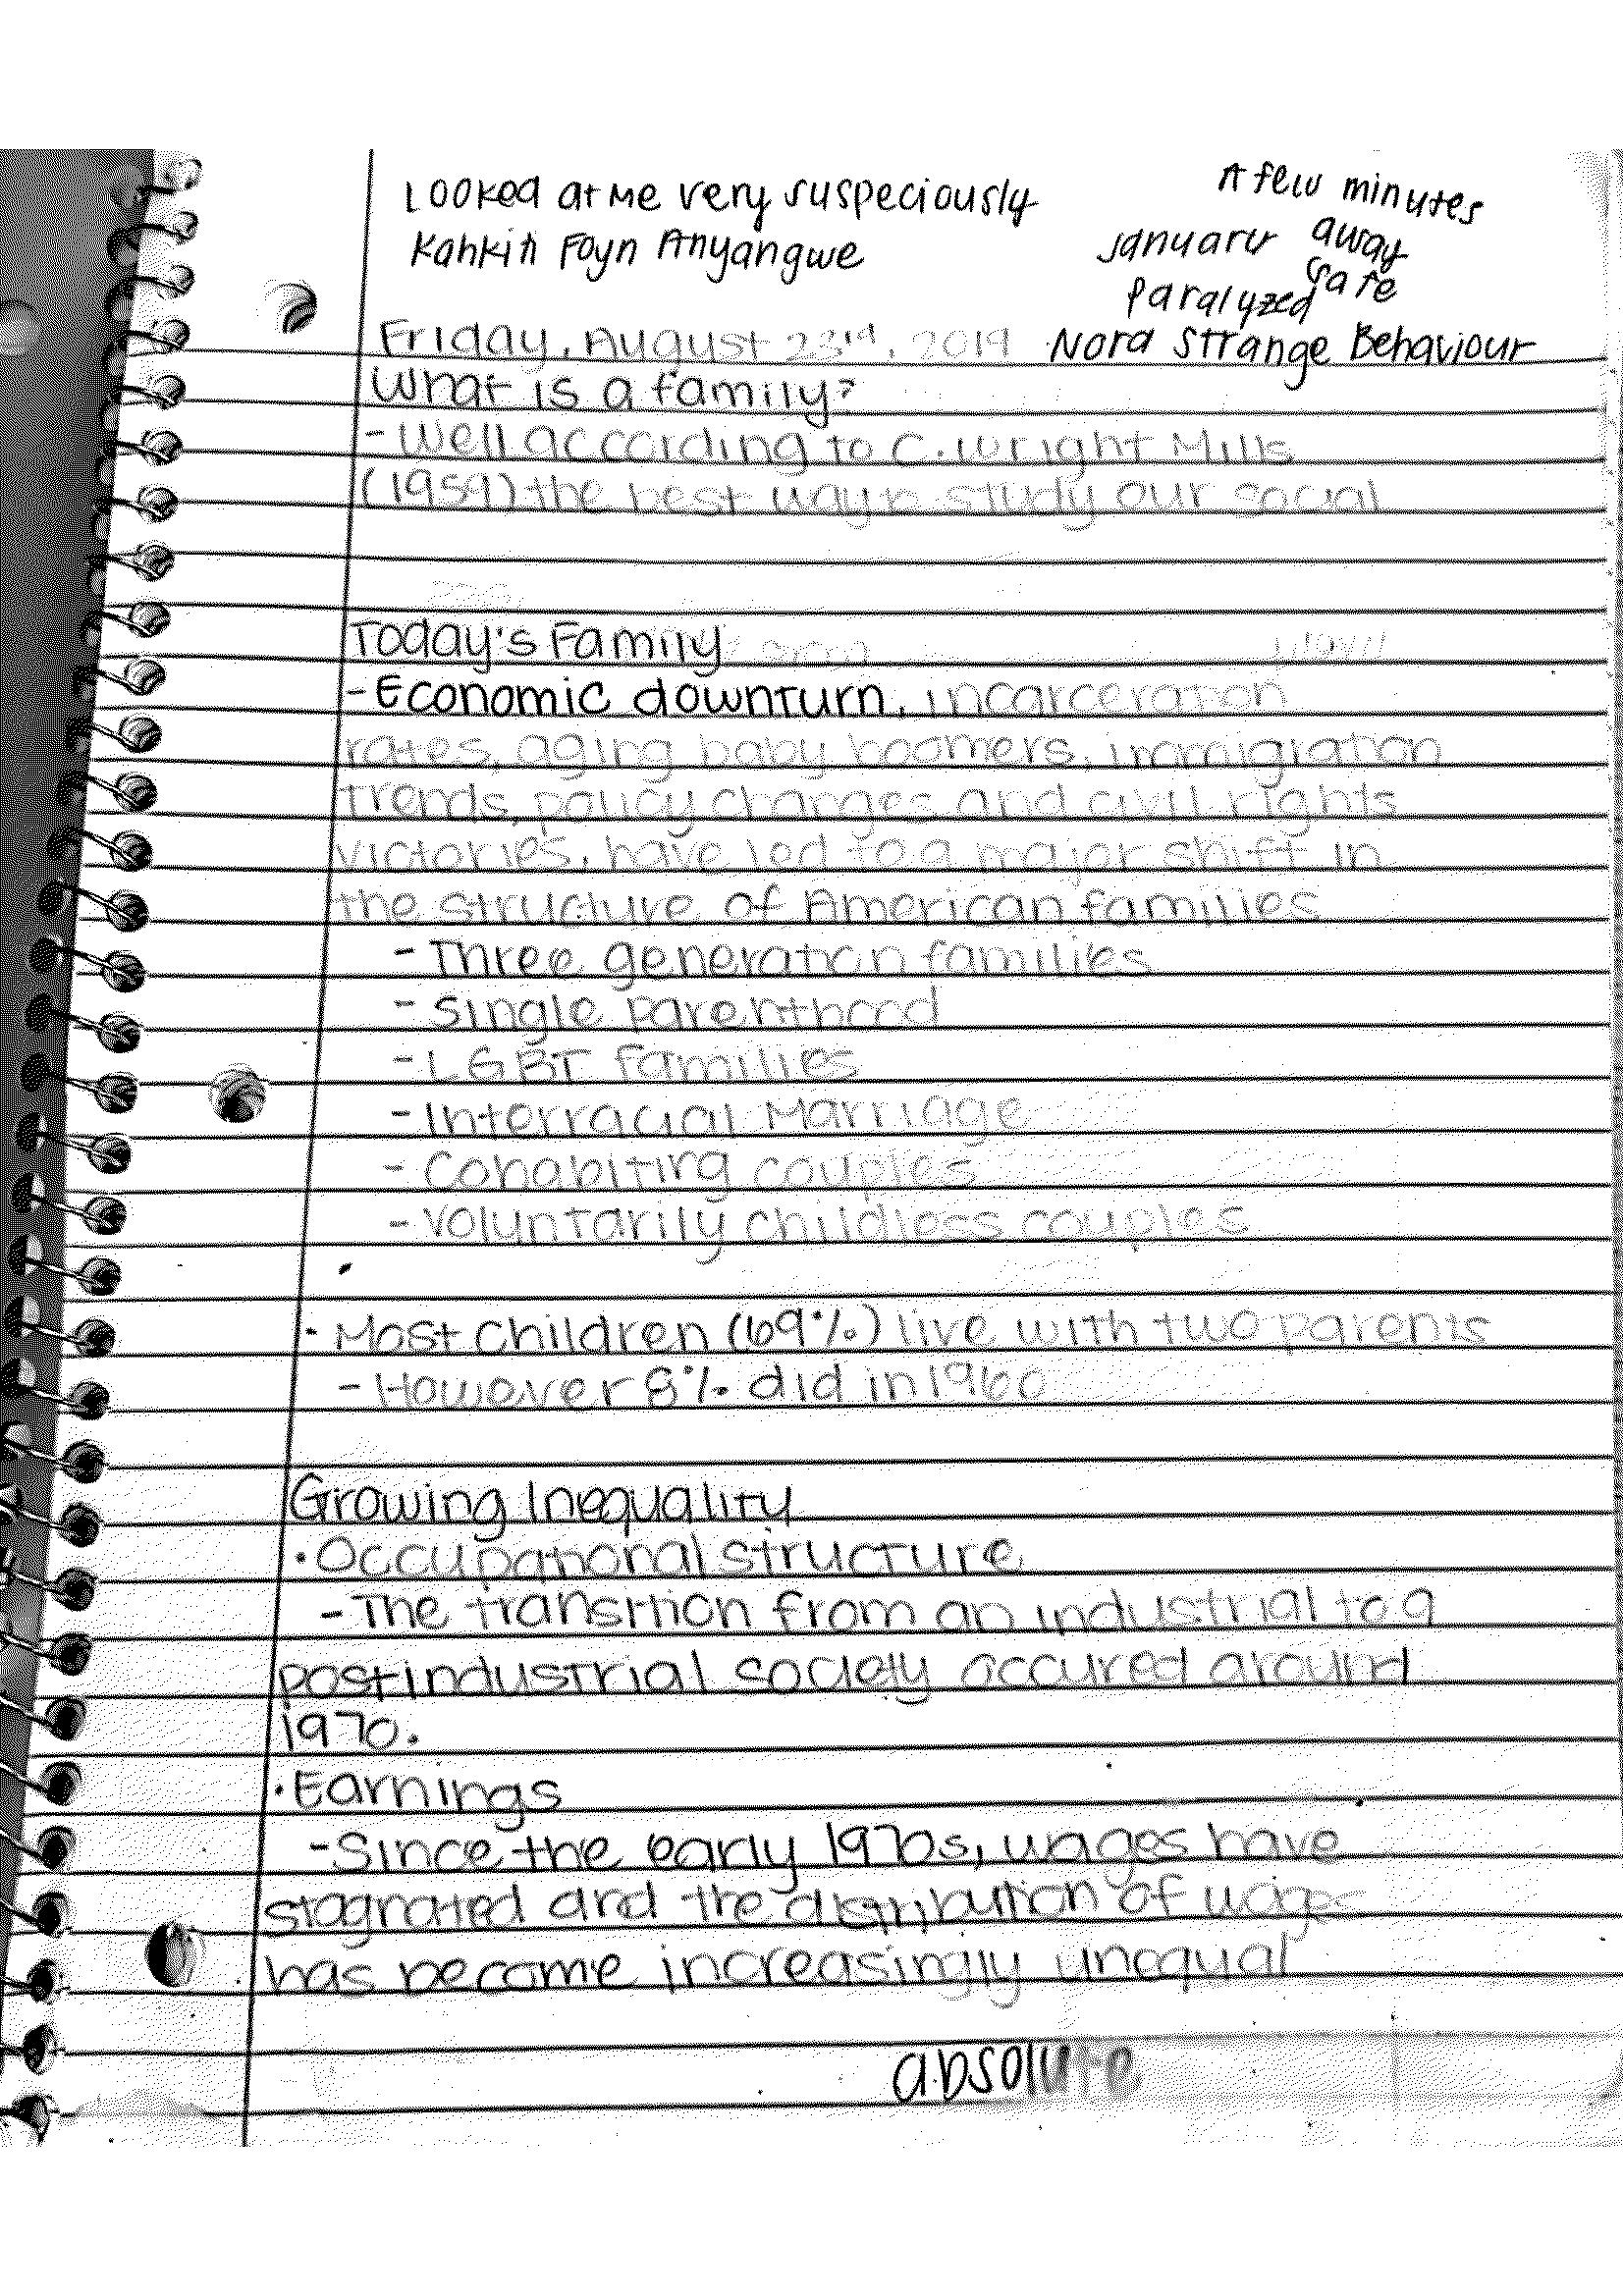 Looked at me very suspeciously
Kahkiti Foyn Anyangwe
A few minutes
away
January
safe
Paralyzed
Nora Strange Behaviour
Friday, August 23rd, 2019
What is a family?
- Well according to C. Wright Mills
(1959) the best way to study our social
Today's Family
- Economic downturn, incarceration
rates, aging baby boomers, immigration
trends, policy changes and civil rights
victories, have led to a major shift in
the structure of American families
- Three generation families
- Single parenthood
- LGBT families
- Interracial Marriage
- Cohabiting couples
- Voluntarily childless couples
• Most children (69%) live with two parents
- However 8% did in 1960
Growing Inequality
• Occupational structure
- The transition from an industrial to a
postindustrial society occured around
1970.
• Earnings
- Since the early 1970s, wages have
stagnated and the distribution of wages
has become increasingly unequal
absolute